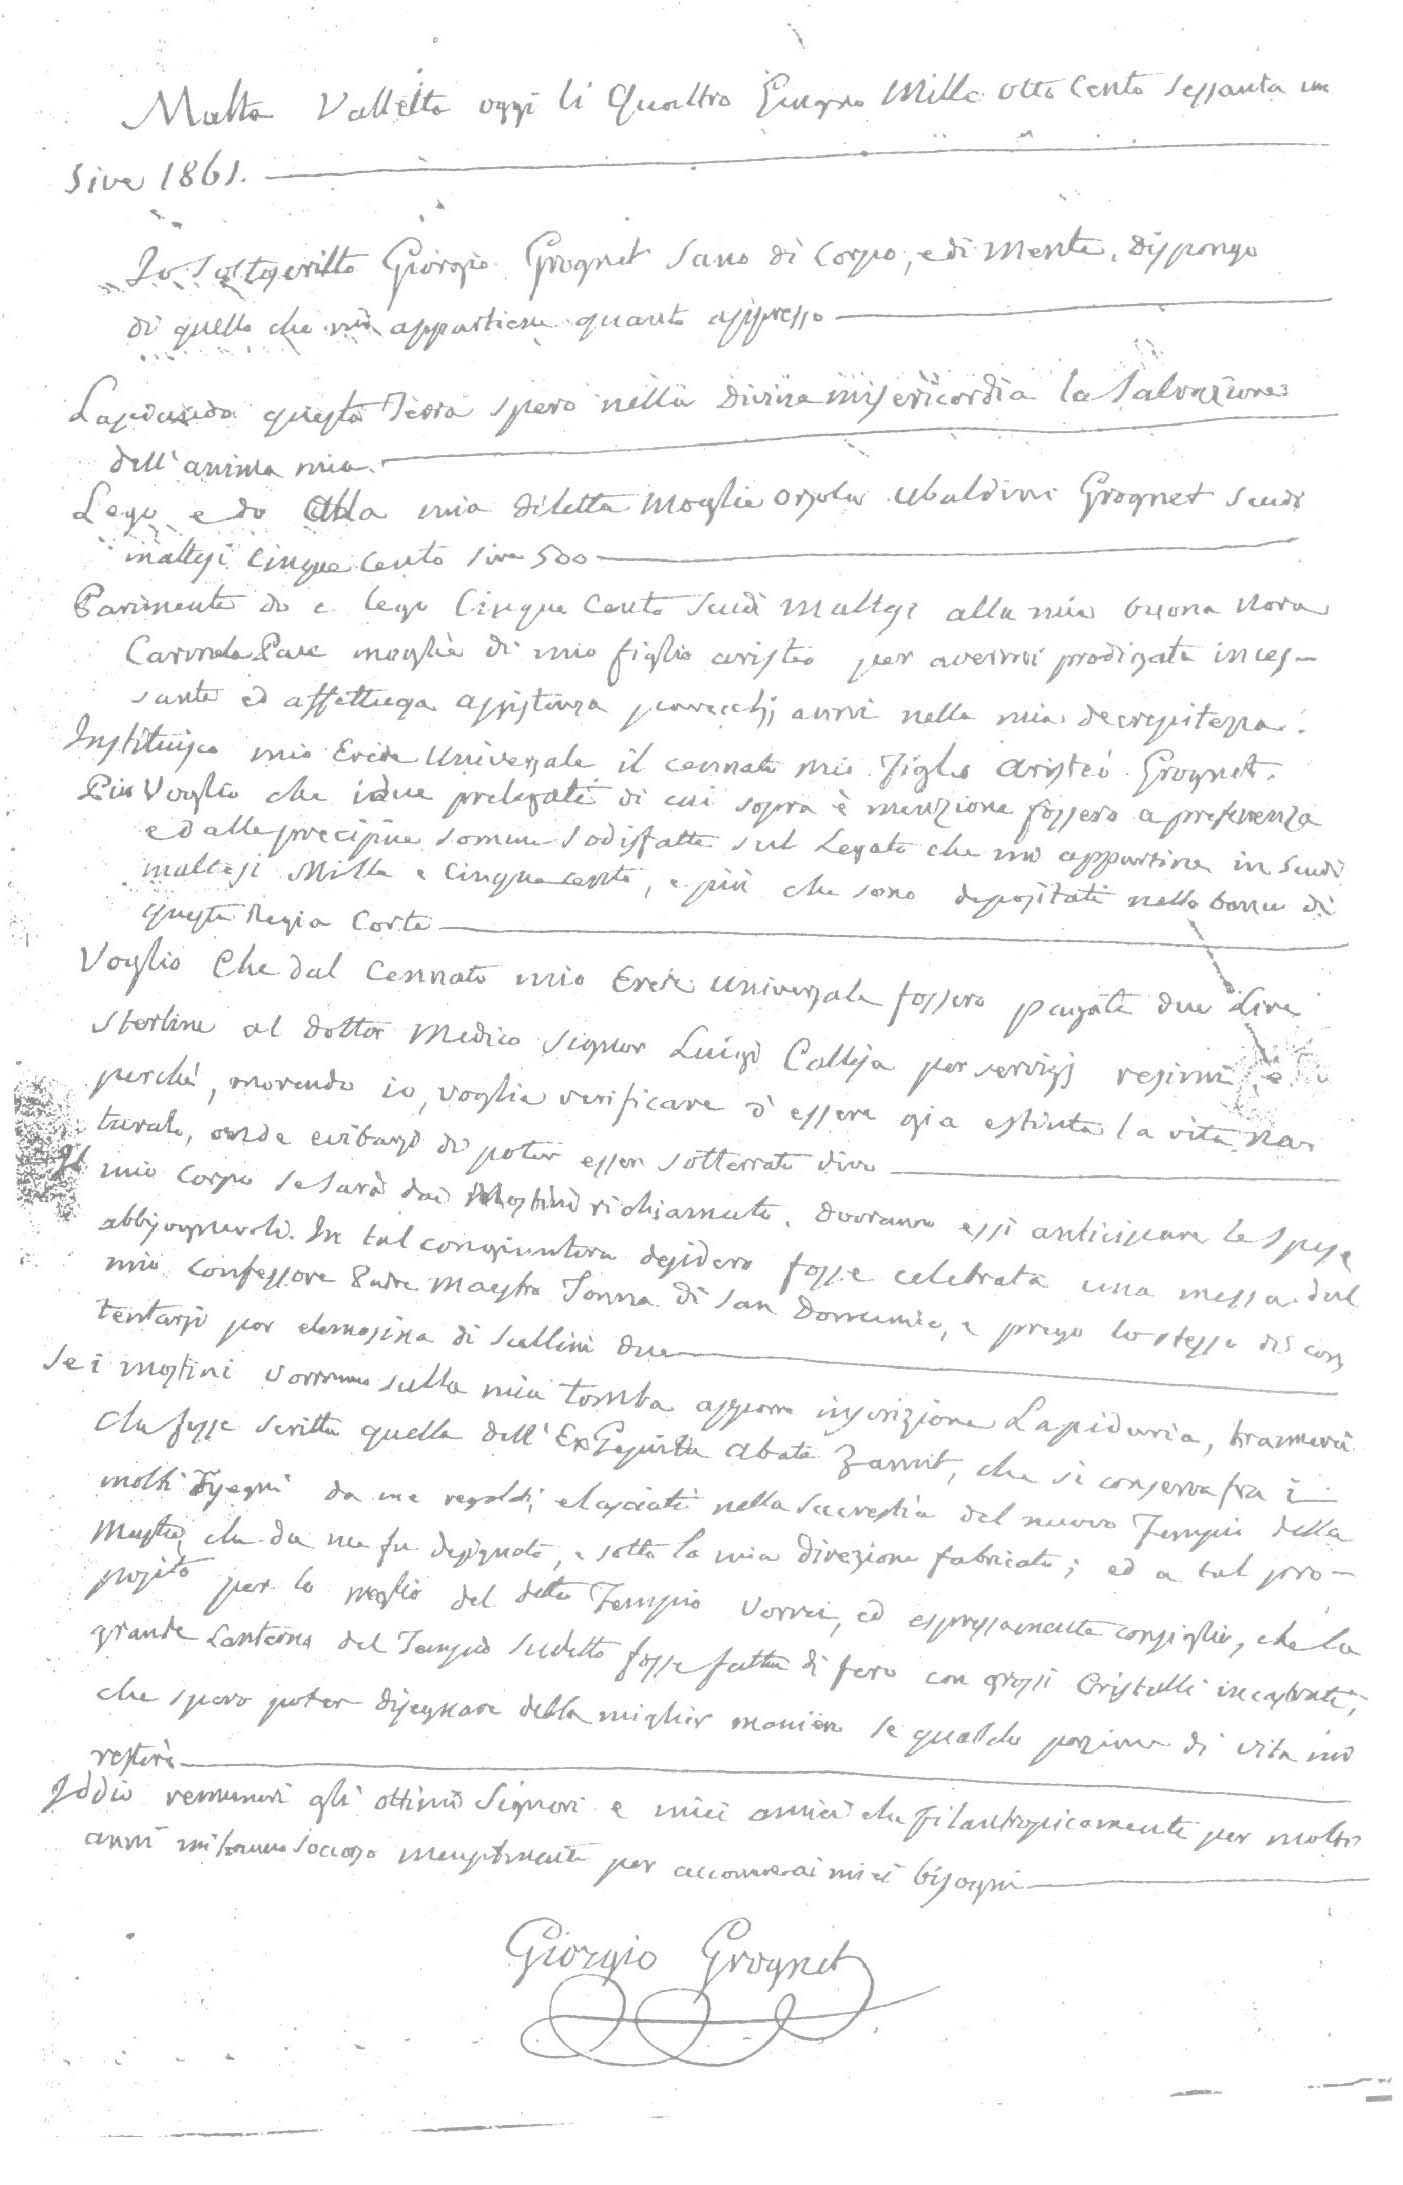 Malta Valletta oggi li Quattro Giugno Mille otto Cento sessanta un
sive 1861.
Io sottoscritto Giorgio Grognet sano di Corpo, e di Mente, dispongo
di quello che mi appartiene quanto appresso
Lasciando questa Terra spero nella Divina misericordia la Salvazione
dell'anima mia.
Lego e do Alla mia diletta Moglie Orsola Ubaldini Grognet Scudi
maltesi Cinque Cento sive 500
Parimente do e lego Cinque Cento Scudi Maltesi alla mia buona Nora
Carmela Pace moglie di mio figlio Aristeo per avermi prodigata inces-
sante ed affettuosa assistenza parecchj anni nella mia decrepitezza.
Instituisco mio Erede Universale il cennato mio Figlio Aristeo Grognet.
Più Voglio che i due prelegati di cui sopra è menzione fossero a preferenza
ed alle precipue somme sodisfatte sul Legato che mi appartiene in Scudi
maltesi Mille e Cinquecento, e più che sono depositati nella banca di
questa Regia Corte
Voglio Che dal Cennato mio Erede Universale fossero pagate due Lire
sterline al Dottor Medico Signor Luigi Calleja per servigj resimi, e
perchè, morendo io, voglia verificare d'essere già estinta la vita na-
turale, onde evitarsi di poter esser sotterrato vivo
Il mio Corpo se sarà dai Mostini richiamato, dovranno essi anticipare le spese
abbisognevoli. In tal congiuntura desidero fosse celebrata una messa dal
mio Confessore Padre Maestro Tonna di San Domenico, e prego lo stesso di con
tentarsi per elemosina di Scellini due
Se i mostini vorranno sulla mia tomba apporre inscrizione Lapidaria, bramerei
che fosse scritta quella dell'ExGesuita Abate Zammit, che si conserva fra i
molti disegni da me regalati, e lasciati nella Sacrestia del nuovo Tempio della
Musta, che da me fu designato, e sotto la mia direzione fabricato; ed a tal pro-
posito per lo meglio del detto Tempio vorrei, ed espressamente consiglio, che la
grande Lanterna del Tempio sudetto fosse fatta di fero con grossi Cristalli incastrati,
che spero poter disegnare della miglior maniera se qualche porzione di vita mi
resterà
Iddio remuneri gli ottimi Signori e miei amici che filantropicamente per molti
anni mi hanno socorso mensilmente per accorrere ai miei bisogni
Giorgio Grognet